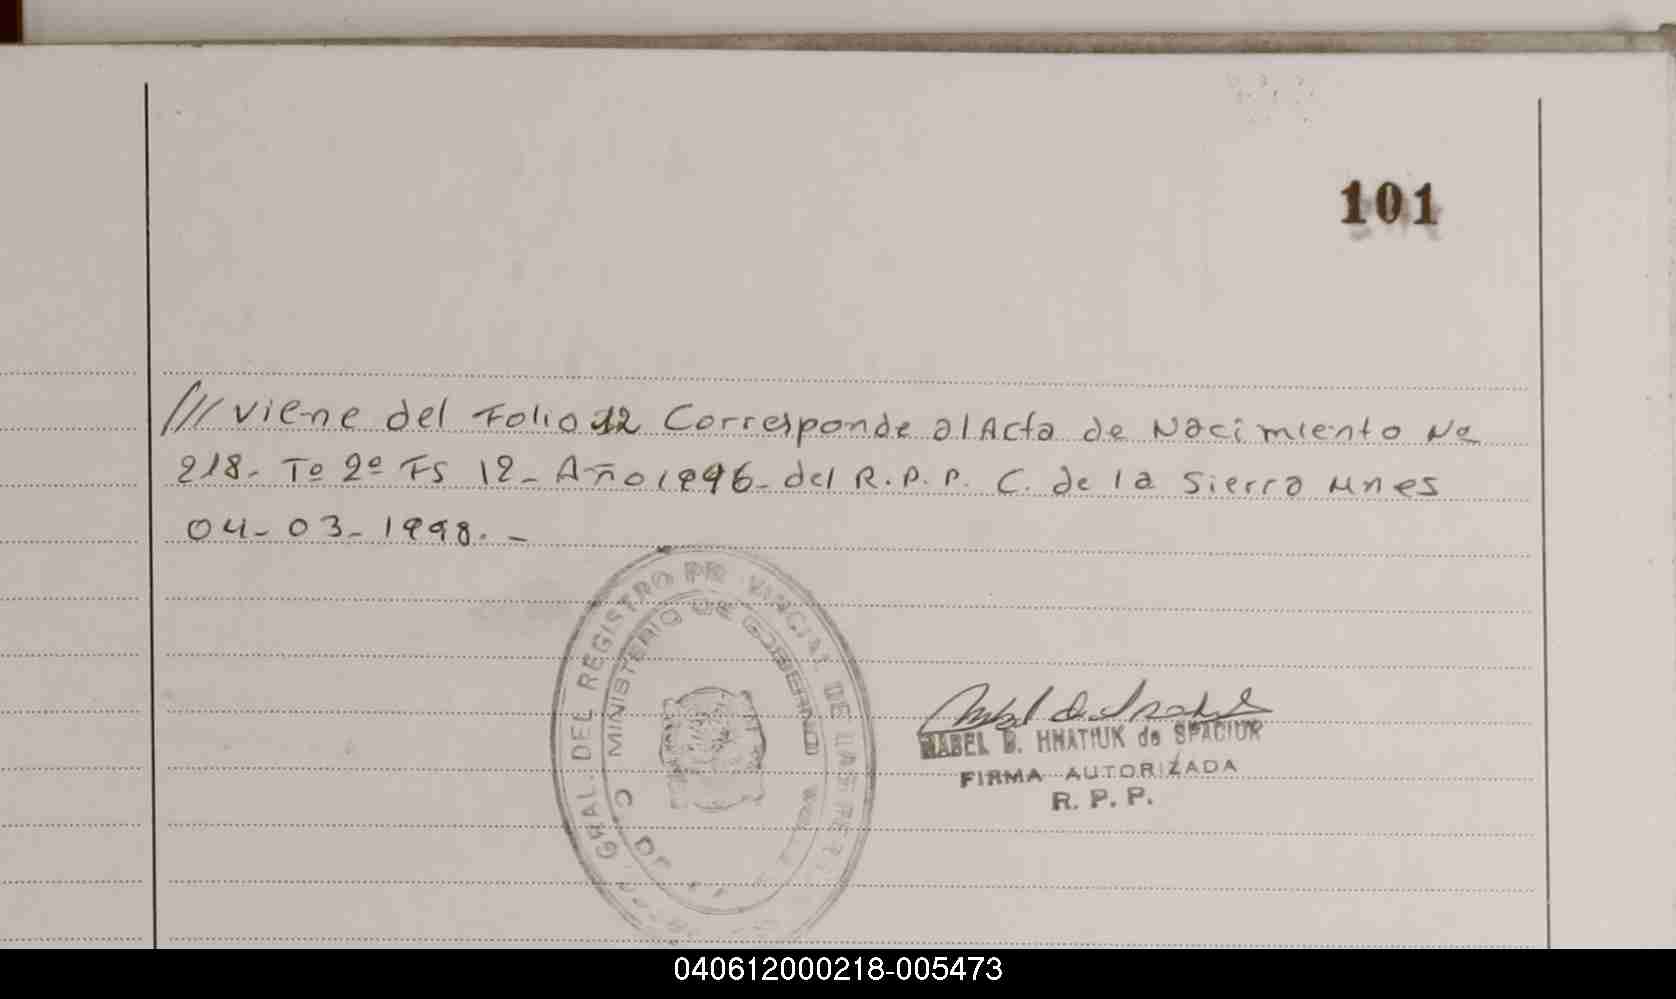 101
/// viene del Folio 12 Corresponde al Acta de Nacimiento Nº
218- Tº 2º FS 12- Año 1996- del R.P.P. C. de la Sierra Mnes
04-03-1998.-
GRAL DEL REGISTRO PR VINCIAL DE LAS PER
MINISTERIO DE GOBIERNO
MABEL B. HNATIUK de SPACIUK
FIRMA AUTORIZADA
R. P. P.
040612000218-005473